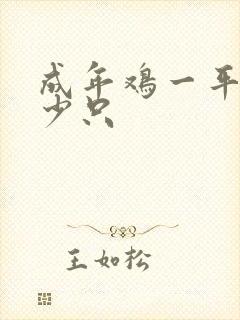 成年鸡一平
少只
王如松